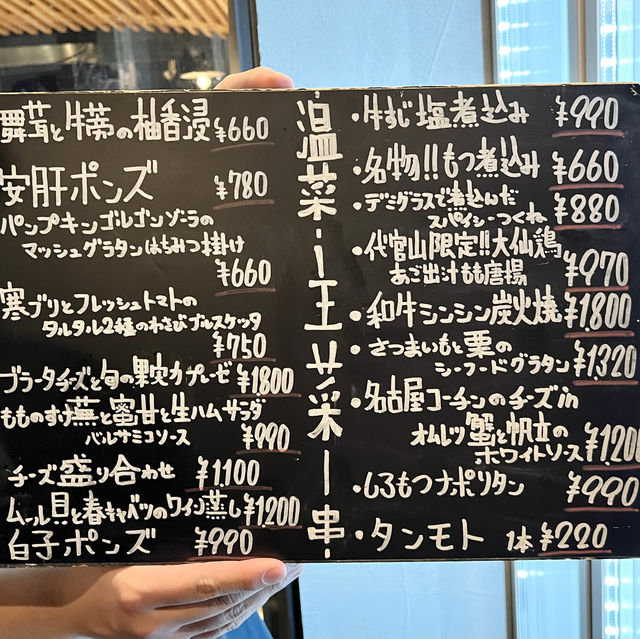 舞茸と牛蒡の柚香浸 ¥660
安肝ポンズ ¥780
パンプキンゴルゴンゾーラの
マッシュグラタンはちみつ掛け
¥660
寒ブリとフレッシュトマトの
タルタル2種のわさびブルスケッタ
¥750
ブラータチーズと旬の果実カプレーゼ ¥1800
もものすけ蕪と蜜甘と生ハムサラダ
バルサミコソース ¥990
チーズ盛り合わせ ¥1,100
ムール貝と春キャベツのワイン蒸し ¥1200
白子ポンズ ¥990
温菜
串
・牛すじ塩煮込み ¥990
・名物!!もつ煮込み ¥660
・デミグラスで煮込んだ
スパイシーつくね ¥880
・代官山限定!!大仙鶏
あご出汁もも唐揚 ¥970
・和牛シンシン炭火焼 ¥1.800
・さつまいもと栗の
シーフードグラタン ¥1.320
・名古屋コーチンのチーズin
オムレツ蟹と帆立の
ホワイトソース ¥1,200
・しろもつナポリタン ¥990
・タンモト 1本 ¥220